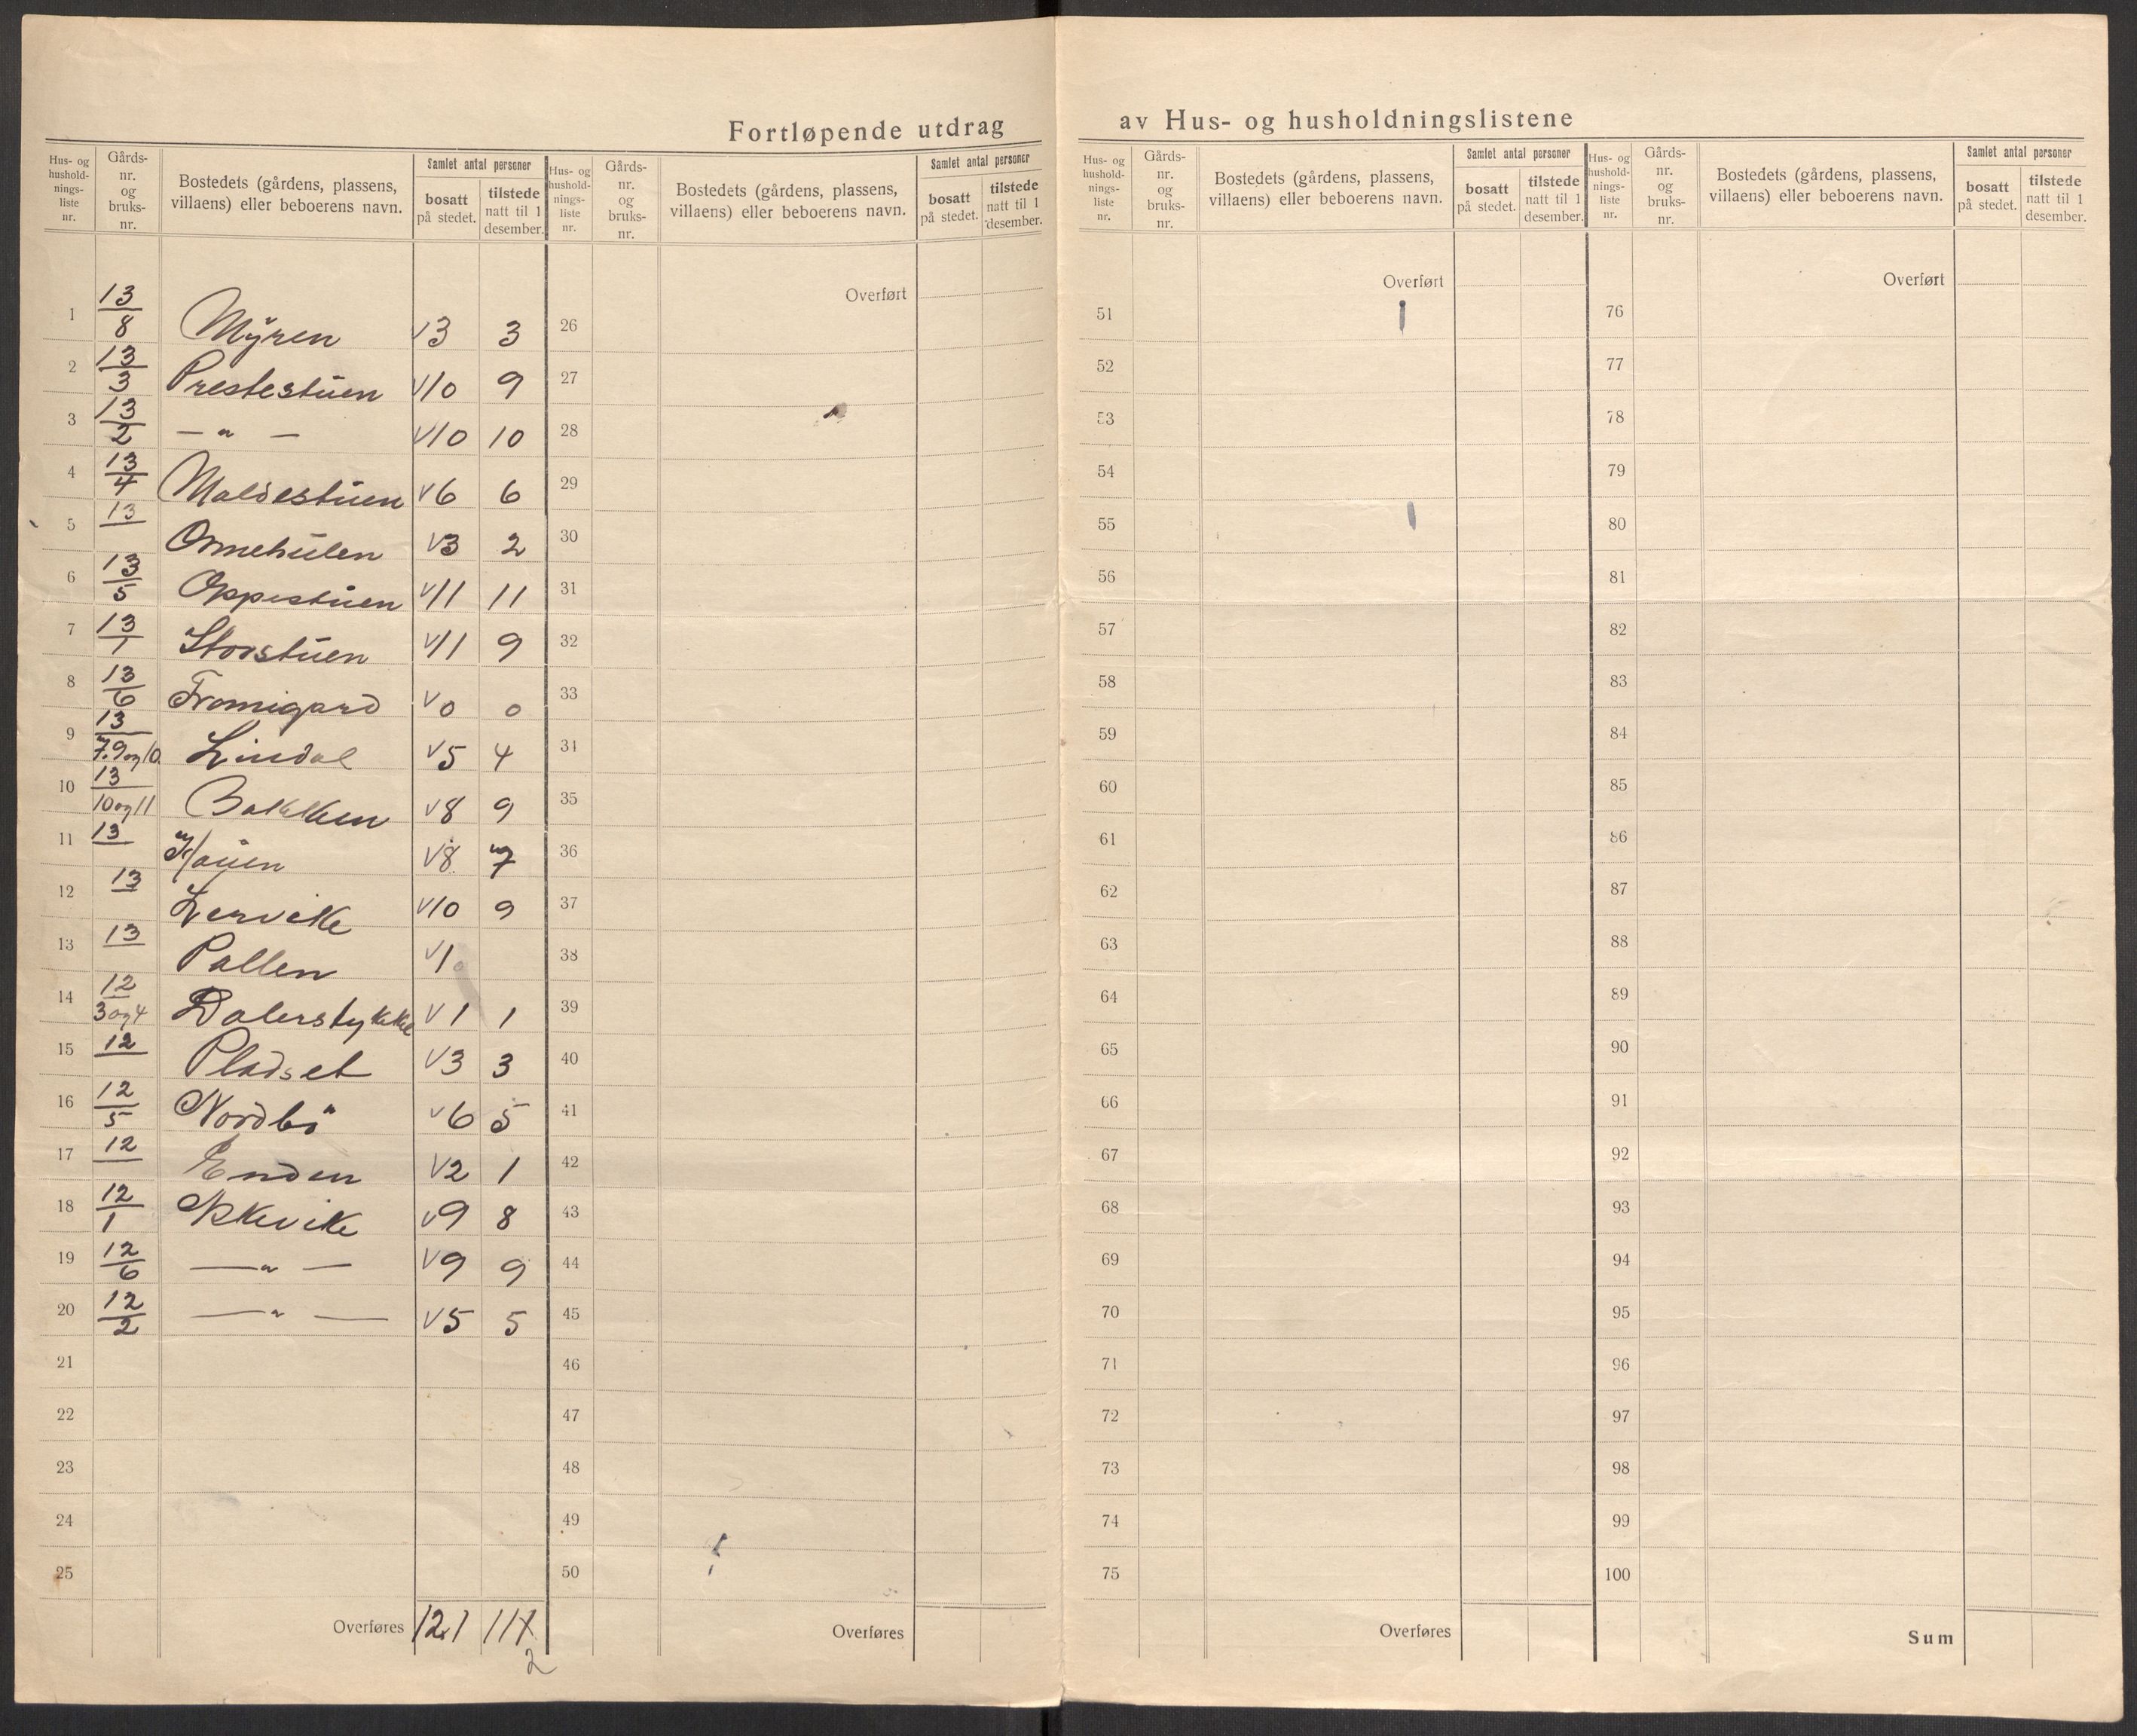 Fortløpende utdrag av Hus- og husholdningslistene
Hus- og husholdningsliste nr. | Gårds-nr. og bruks-nr. | Bostedets (gårdens, plassens, villaens) eller beboerens navn. | Samlet antal personer | bosatt på stedet. | tilstede natt til 1 desember.
Hus- og husholdningsliste nr. | Gårds-nr. og bruks-nr. | Bostedets (gårdens, plassens, villaens) eller beboerens navn. | Samlet antal personer | bosatt på stedet. | tilstede natt til 1 desember.
Hus- og husholdningsliste nr. | Gårds-nr. og bruks-nr. | Bostedets (gårdens, plassens, villaens) eller beboerens navn. | Samlet antal personer | bosatt på stedet. | tilstede natt til 1 desember.
Hus- og husholdningsliste nr. | Gårds-nr. og bruks-nr. | Bostedets (gårdens, plassens, villaens) eller beboerens navn. | Samlet antal personer | bosatt på stedet. | tilstede natt til 1 desember.
Overført Overført Overført
1 13/8 Myren v3 3 26 51 76
2 13/3 Prestestuen v10 9 27 52 77
3 13/2 — " — v10 10 28 53 78
4 13/4 Maldestuen v6 6 29 54 79
5 13 Ornehulen v3 2 30 55 80
6 13/5 Oppestuen v11 11 31 56 81
7 13/1 Storstuen v11 9 32 57 82
8 13/6 Fromigard v0 0 33 58 83
9 13/7.9og10 Lindal v5 4 34 59 84
10 13/10og11 Bakken v8 9 35 60 85
11 13 Hauen v8 7 36 61 86
12 13 Lervike v10 9 37 62 87
13 13 Pallen v1 38 63 88
14 12/3og4 Dalerstykke v1 1 39 64 89
15 12 Pladset v3 3 40 65 90
16 12/5 Nordbö v6 5 41 66 91
17 12 Enden v2 1 42 67 92
18 12/1 v9 8 43 68 93
19 12/6 — " — v9 9 44 69 94
20 12/2 — " — v5 5 45 70 95
21 46 71 96
22 47 72 97
23 48 73 98
24 49 74 99
25 50 75 100
Overføres 121 111 Overføres Overføres Sum
2